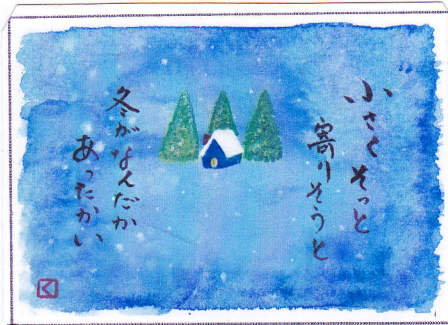 小さく そっと
寄りそうと
冬がなんだか
あったかい
く